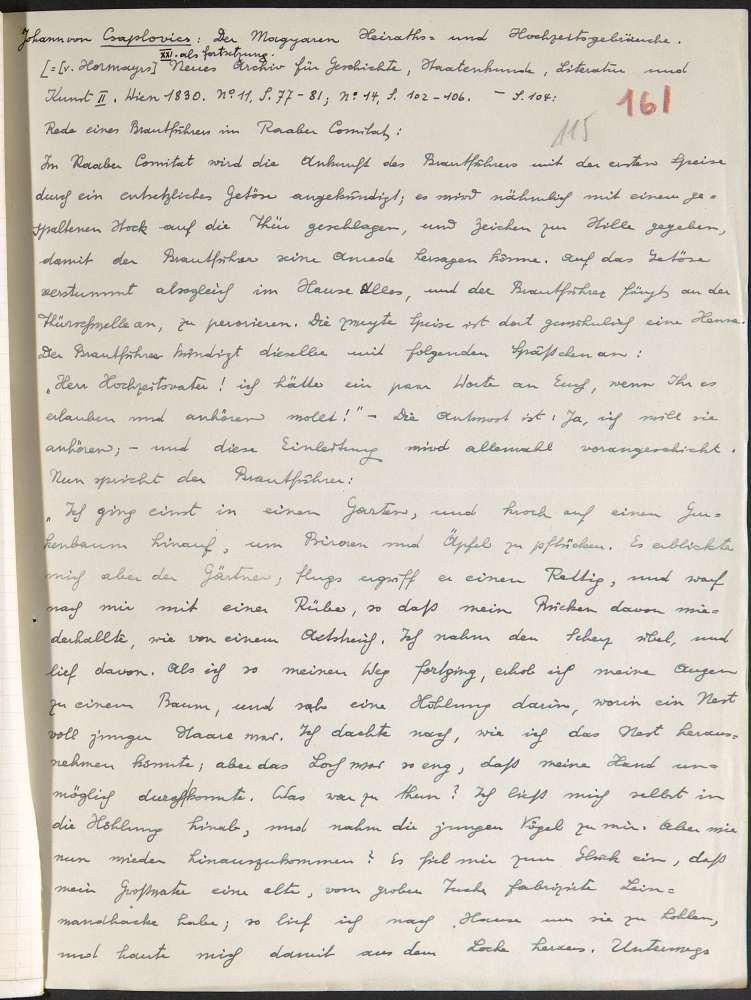 Johann von Csaplovics: Der Magyaren Heiraths- und Hochzeitsgebräuche.
XXI. als fortsetzung.
[=[v. Hormayrs] Neues Archiv für Geschichte, Staatenkunde, Literatur und
Kunst II. Wien 1830. No 11, S. 77-81; No 14, S. 102-106. – S. 104:
161
115
Rede eines Brautführers im Raaber Comitat:
Im Raaber Comitat wird die Ankunft des Brautführers mit der ersten Speise
durch ein entsetzliches Getöse angekündigt; es wird nähmlich mit einem ge-
spaltenen Stock auf die Thür geschlagen, und Zeichen zur Stille gegeben,
damit der Brautführer seine Anrede hersagen könne. Auf das Getöse
verstummt alsogleich im Hause Alles, und der Brautführer fängt an der
Thürschwelle an, zu perorieren. Die zweyte Speise ist dort gewöhnlich eine Henne.
Der Brautführer kündigt dieselbe mit folgenden Späßchen an:
„Herr Hochzeitsvater! ich hätte ein paar Worte an Euch, wenn Ihr es
erlauben und anhören wollt!" – Die Antwort ist: Ja, ich will sie
anhören; – und diese Einleitung wird allemahl vorangeschickt.
Nun spricht der Brautführer:
„Ich ging einst in einen Garten, und kroch auf einen Gur-
kenbaum hinauf, um Birnen und Äpfel zu pflücken. Es erblickte
mich aber der Gärtner, flugs ergriff er einen Rettig, und warf
nach mir mit einer Rübe, so daß mein Rücken davon wie-
derhallte, wie von einem Aststreich. Ich nahm den Scherz übel, und
lief davon. Als ich so meinen Weg fortging, erhob ich meine Augen
zu einem Baum, und sah eine Höhlung darin, worin ein Nest
voll junger Staare war. Ich dachte nach, wie ich das Nest heraus-
nehmen könnte; aber das Loch war so eng, daß meine Hand un-
möglich durchkonnte. Was war zu thun? Ich ließ mich selbst in
die Höhlung hinab, und nahm die jungen Vögel zu mir. Aber wie
nun wieder hinauszukommen? Es fiel mir zum Glück ein, daß
mein Großvater eine alte, vom groben Tuche fabrizirte Lein-
wandhacke habe; so lief ich nach Hause um sie zu hohlen,
und haute mich damit aus dem Loche heraus. Unterwegs